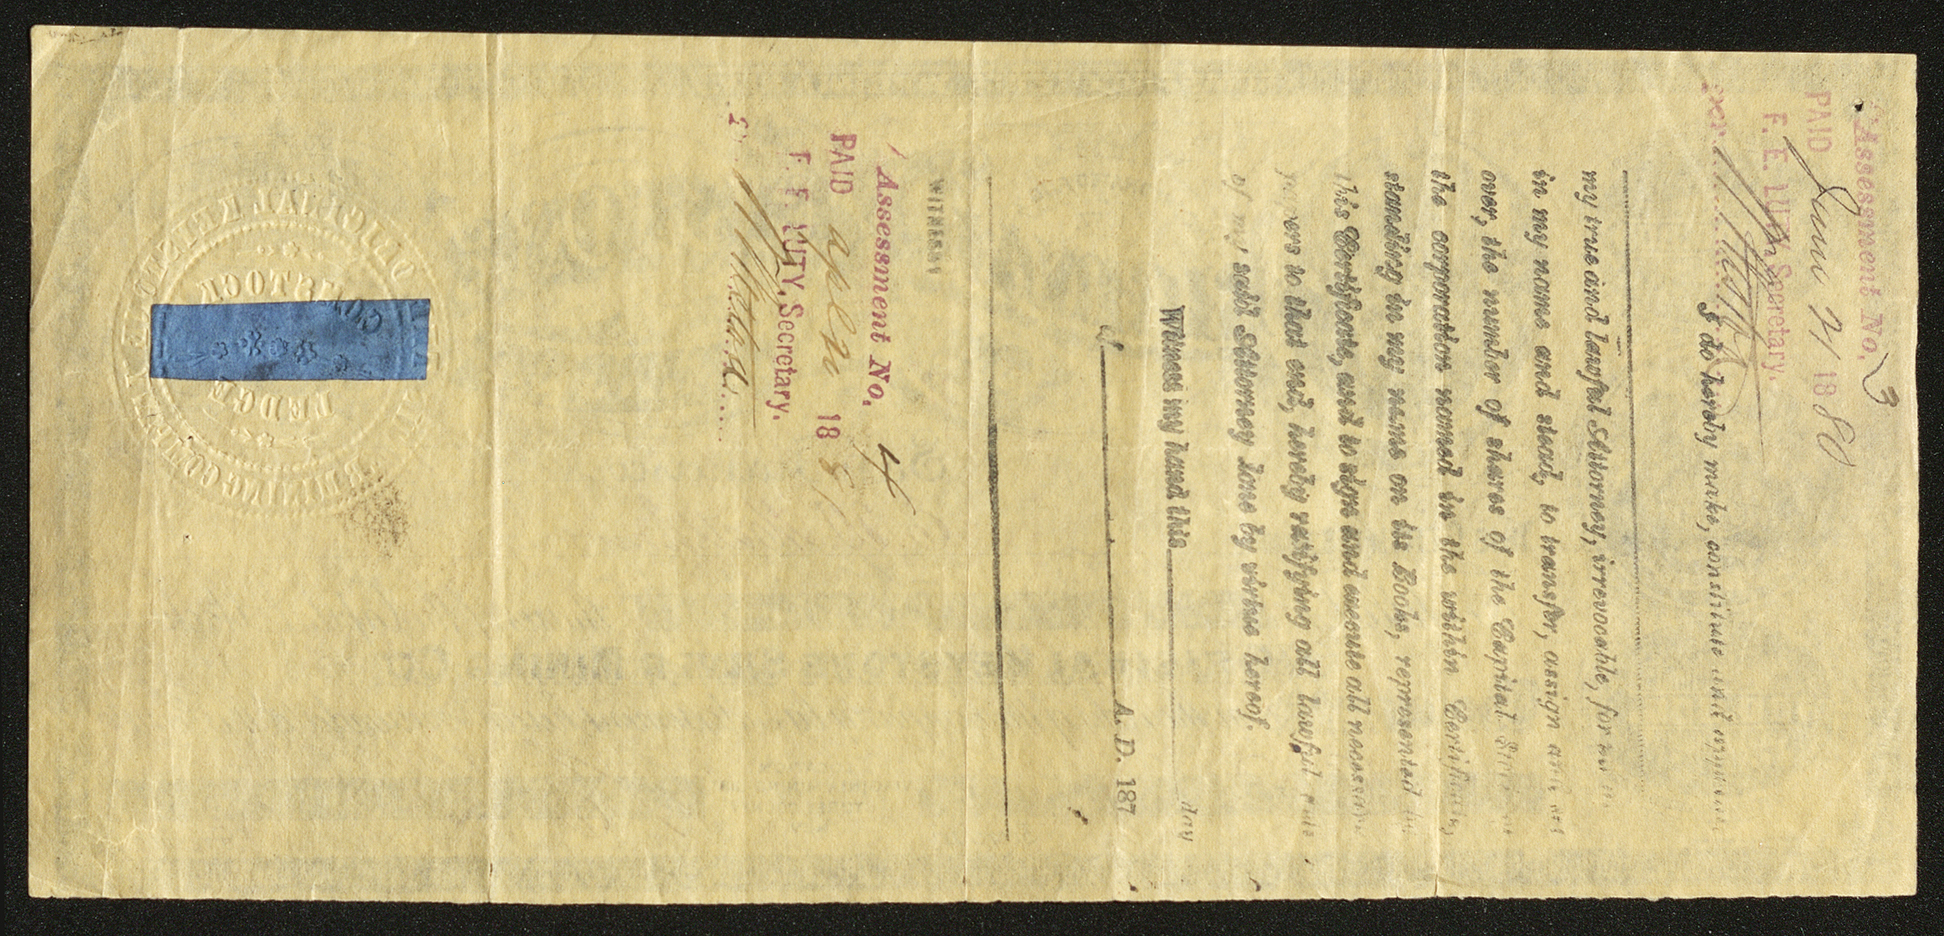 Assessment No. 3
PAID June 21 1880
F. E. LUTY, Secretary.
per
I do hereby make, constitute and appoint
my true and lawful Attorney, irrevocable, for me
in my name and stead, to transfer, assign and set
over, the number of shares of the Capital Stock of
the corporation named in the within Certificate,
standing in my name on its Books, represented by
this Certificate, and to sign and execute all necessary
papers to that end, hereby ratifying all lawful acts
of my said Attorney done by virtue hereof.
Witness my hand this day
of A. D. 187
WITNESS
Assessment No. 4
PAID 188
F. E. LUTY, Secretary.
ORIGINAL KEYSTONE
MINING COMPANY
COMSTOCK
LEDGE